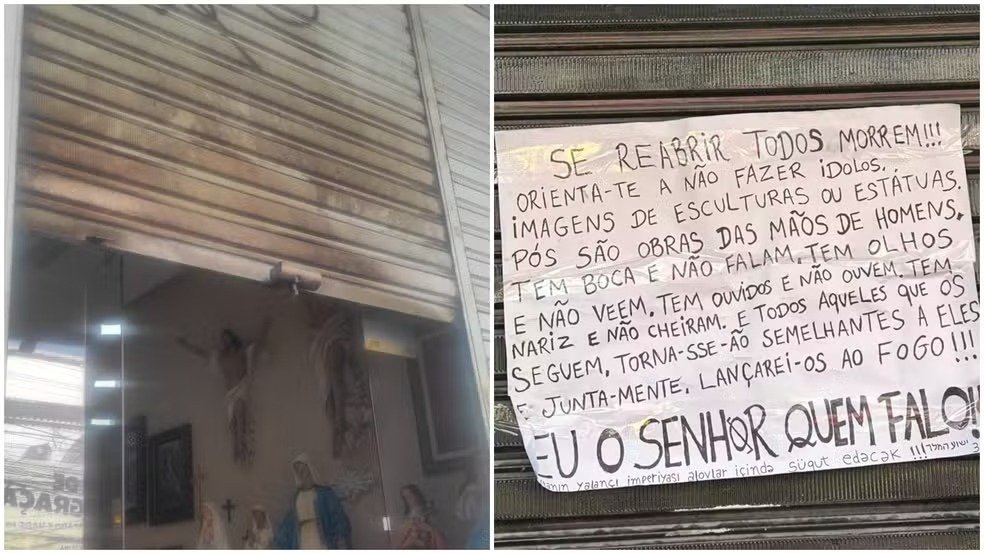 DE
GRAÇA
SE REABRIR TODOS MORREM!!!
ORIENTA-TE A NÃO FAZER ÍDOLOS.
IMAGENS DE ESCULTURAS OU ESTÁTUAS.
PÓS SÃO OBRAS DAS MÃOS DE HOMENS.
TEM BOCA E NÃO FALAM. TEM OLHOS
E NÃO VEEM. TEM OUVIDOS E NÃO OUVEM. TEM
NARIZ E NÃO CHEIRAM. E TODOS AQUELES QUE OS
SEGUEM, TORNA-SSE-ÃO SEMELHANTES A ELES
E JUNTA-MENTE. LANÇAREI-OS AO FOGO!!!
EU O SENHOR QUEM FALO!!
yalançı imperiyası alovlar içində süqut edəcək!!!